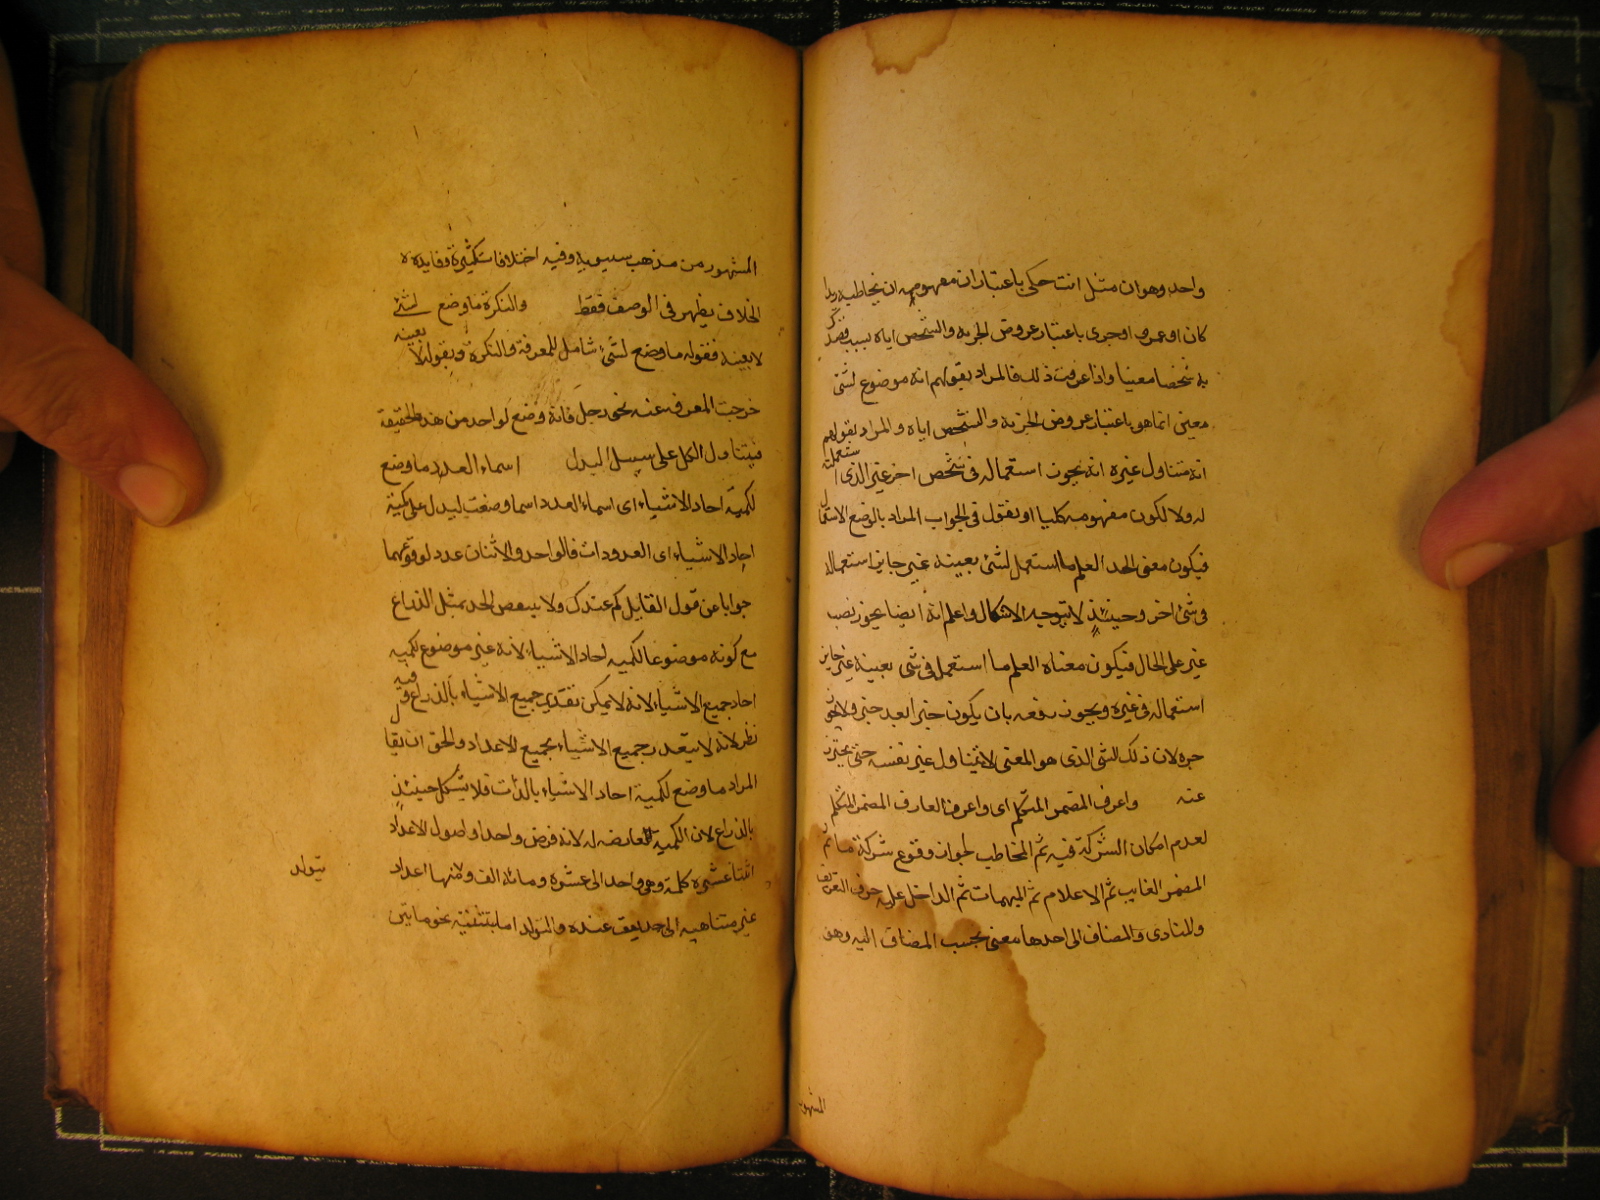 واحد وهو ان مثل انت حكى باعتبار ان مفهومه ان يخاطب به زيدا
كان او عمروا وجزى باعتبار عروض الجزيه والتشخص اياه بسبب قصد
به شخصا معينا واذا عرفت ذلك فالمراد بقولهم انه موضوع لشئ
معين انما هو باعتبار عروض الجزية والتشخص اياه والمراد بقولهم
انه متناول غيره انه يجوز استعماله فى شخص اخر غير الذى استعملته
له ولا لكون مفهومه كليا او نقول فى الجواب المراد بالوضع الاستعمال
فيكون معنى الحد العلم ما استعمل لشئ بعينه غير جايز استعماله
فى شئ اخر وحينئذ لا يتوجه الاشكال واعلم انه ايضا يجوز نصب
غير على الحال فيكون معناه العلم ما استعمل فى شئ بعينه غير جايز
استعماله فى غيره ويجوز رفعه بان يكون خبرا بعد خبر ولا يجوز
جره لان ذلك الشئ الذى هو المعنى لا يتناول غير نفسه حتى يحترز
عنه واعرف المضمر المتكلم اى واعرف المعارف المضمر المتكلم
لعدم امكان الشركة فيه ثم المخاطب لجواز وقوع شركة ما ثم
المضمر الغايب ثم الاعلام ثم المبهمات ثم الداخل عليه حرف التعريف
وللنادى والمضاف الى احدها معنى بحسب المضاف اليه وهو
المشهور
المشهور من مذهب سيبويه وفيه اختلافات كثيرة وفايدة
الخلاف يظهر فى الوصف فقط والنكرة ما وضع لشئ
لا بعينه فقوله ما وضع لشئ شامل للمعرفة والنكرة وبقوله لا بعينه
خرجت المعرفة عنه نحو رجل فانه وضع لواحد من هذه الحقيقة
فيتناول الكل على سبيل البدل اسماء العدد ما وضع
لكميّة احاد الاشياء اى اسماء العدد اسما وضعت ليدل على كمية
احاد الاشياء اى المعدودات فالواحد والاثنان عدد لوقوعهما
جوابا عن قول القايل كم عندك ولا ينتقض الحد بمثل الذراع
مع كونه موضوعا لكميه احاد الاشياء لانه غير موضوع لكميه
احاد جميع الاشياء لانه لا يمكن تقدير جميع الاشياء بالذراع وفيه
نظر لانه لا يتعدد جميع الاشياء بجميع الاعداد والحق ان يقال
المراد ما وضع لكمية احاد الاشياء بالذات فلا يشكل حينئذ
بالذراع لان الكميه عارضه له لانه فرض واحد واصول الاعداد
اثنتا عشره كلمة وهى واحد الى عشره ومائة الف ولانها اعداد
غير متناهيه الى حد يقف عنده والمولد اما بتثنية نحو مايتين
يتولد